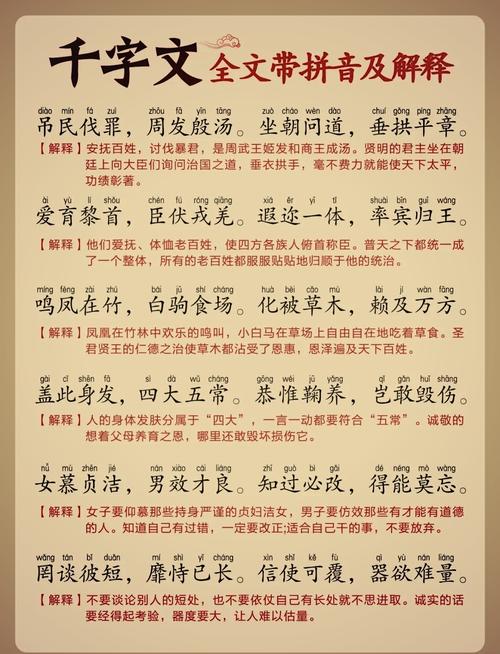 千字文 全文带拼音及解释
diào mín fá zuì zhōu fā yīn tāng zuò cháo wèn dào chuí gǒng píng zhāng
吊民伐罪，周发殷汤。坐朝问道，垂拱平章。
【解释】安抚百姓，讨伐暴君，是周武王姬发和商王成汤。贤明的君主坐在朝
廷上向大臣们询问治国之道，垂衣拱手，毫不费力就能使天下太平，
功绩彰著。
ài yù lí shǒu chén fú róng qiāng xiá ěr yī tǐ shuài bīn guī wáng
爱育黎首，臣伏戎羌。遐迩一体，率宾归王。
【解释】他们爱抚、体恤老百姓，使四方各族人俯首称臣。普天之下都统一成
了一个整体，所有的老百姓都服服贴贴地归顺于他的统治。
míng fèng zài zhú bái jū shí chǎng huà bèi cǎo mù lài jí wàn fāng
鸣凤在竹，白驹食场。化被草木，赖及万方。
【解释】凤凰在竹林中欢乐的鸣叫，小白马在草场上自由自在地吃着草食。圣
君贤王的仁德之治使草木都沾受了恩惠，恩泽遍及天下百姓。
gài cǐ shēn fà sì dà wǔ cháng gōng wéi jū yǎng qǐ gǎn huǐ shāng
盖此身发，四大五常。恭惟鞠养，岂敢毁伤。
【解释】人的身体发肤分属于“四大”，一言一动都要符合“五常”。诚敬的
想着父母养育之恩，哪里还敢毁坏损伤它。
nǚ mù zhēn jié nán xiào cái liáng zhī guò bì gǎi dé néng mò wàng
女慕贞洁，男效才良。知过必改，得能莫忘。
【解释】女子要仰慕那些持身严谨的贞妇洁女，男子要仿效那些有才能有道德
的人。知道自己有过错，一定要改正;适合自己干的事，不要放弃。
wǎng tán bǐ duǎn mí shì jǐ cháng xìn shǐ kě fù qì yù nán liáng
罔谈彼短，靡恃己长。信使可覆，器欲难量。
【解释】不要谈论别人的短处，也不要依仗自己有长处就不思进取。诚实的话
要经得起考验，器度要大，让人难以估量。